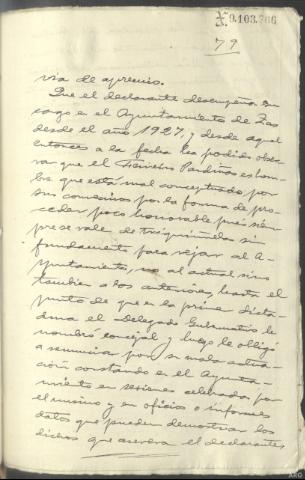 X.9.103.766
79
via de apremio.
Que el declarante desempeña su
cargo en el Ayuntamiento de Zas
desde el año 1927, y desde aquel
entonces a la fecha ha podido obser
var que el Ferreiro Pardiñas es hom
bre que está mal conceptuado por
sus convecinos por la forma de pro
ceder poco honorable pues siem
pre se vale de triquiñuelas sin
fundamento para vejar al A-
yuntamiento, no al actual sino
tambien a los anteriores, hasta el
punto de que en la prime dicta-
dura el Delegado Gubernativo le
nombró concejal y luego le obligó
a renunciar por su mala actua-
ción constando en el Ayunta-
miento en sesiones celebradas por
el mismo y en oficios o informes
datos que pueden demostrar los
dichos que asevera el declarante